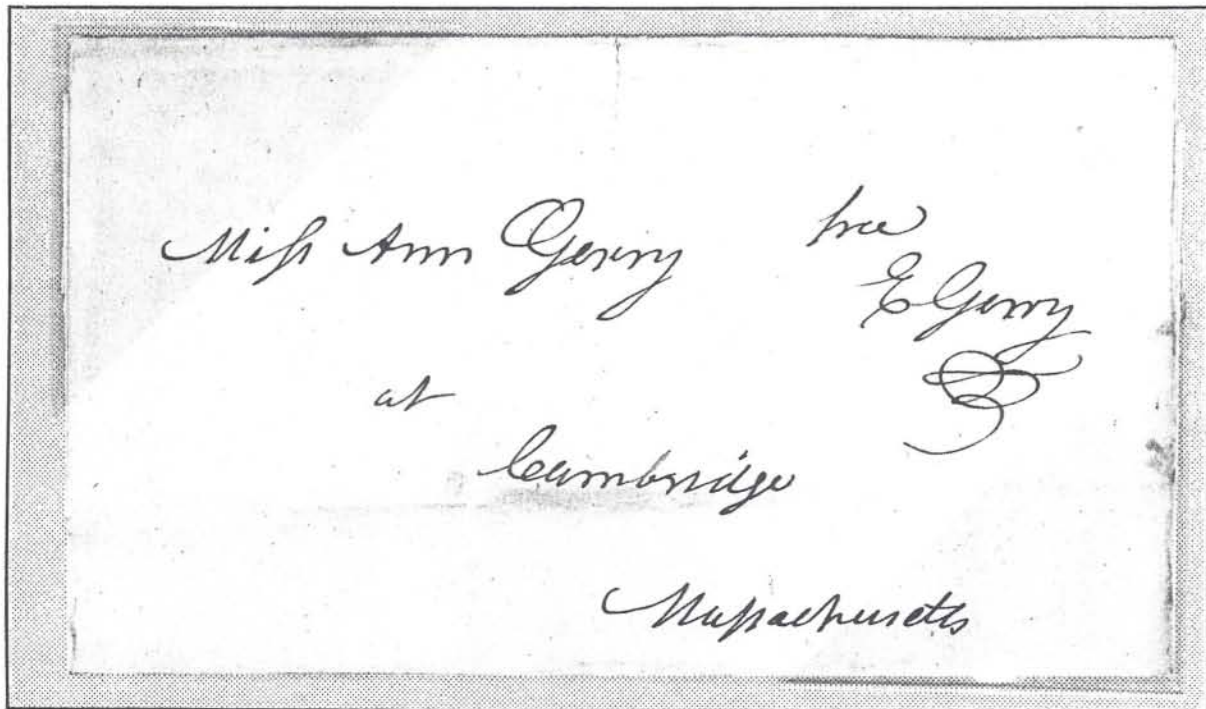 Miſs Ann Gerry
free
E Gerry
at
Cambridge
Maſsachusetts